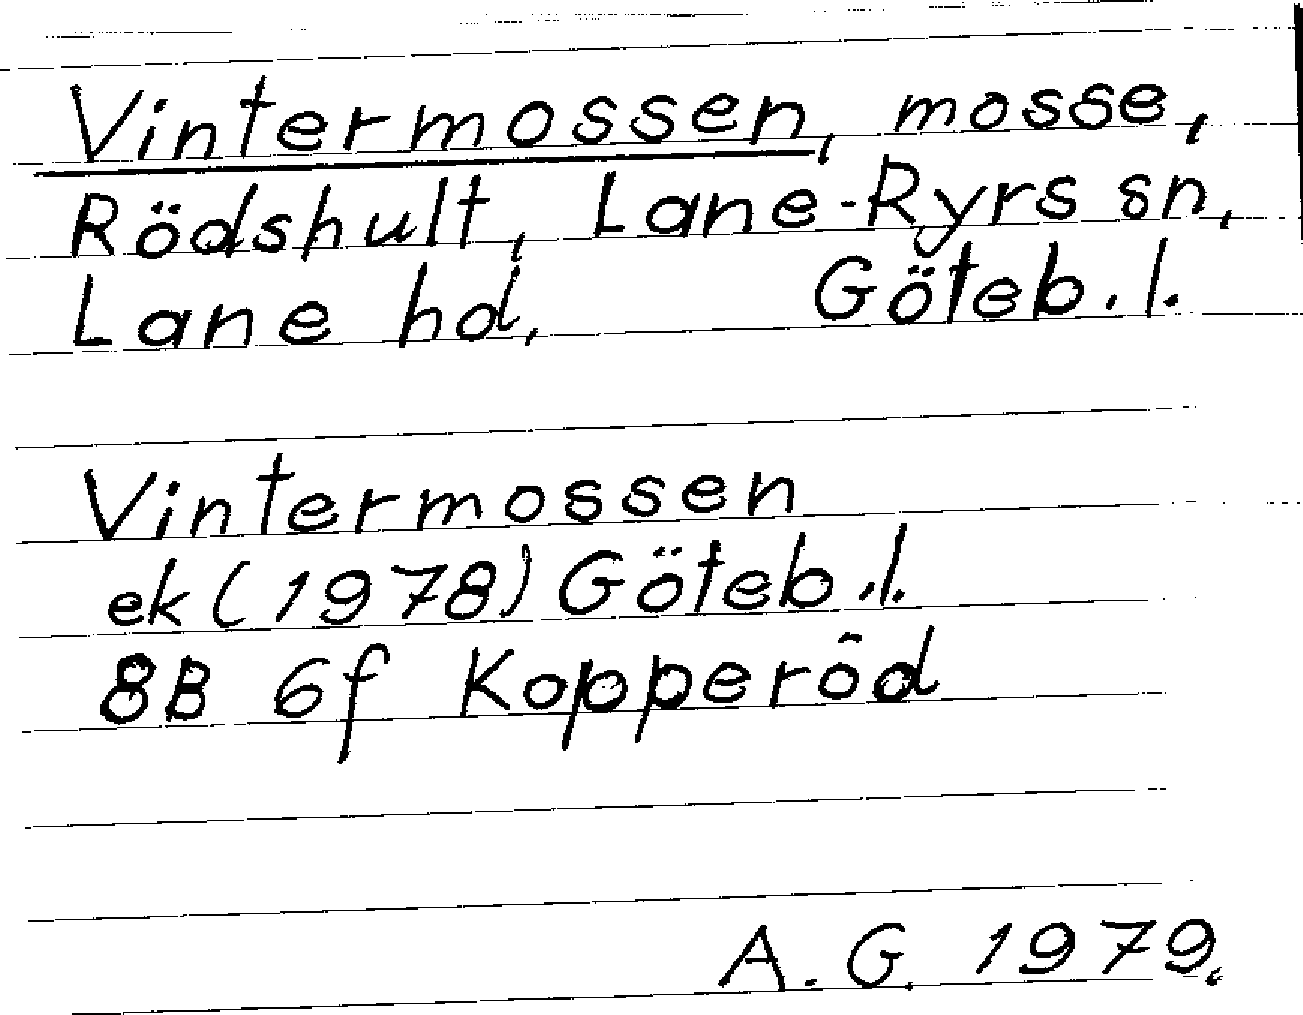 Vintermossen, mosse,
Rödshult, Lane-Ryrs sn,
Lane hd, Göteb. l.
Vintermossen
ek (1978) Göteb. l.
8B 6f Kopperöd
A. G. 1979.